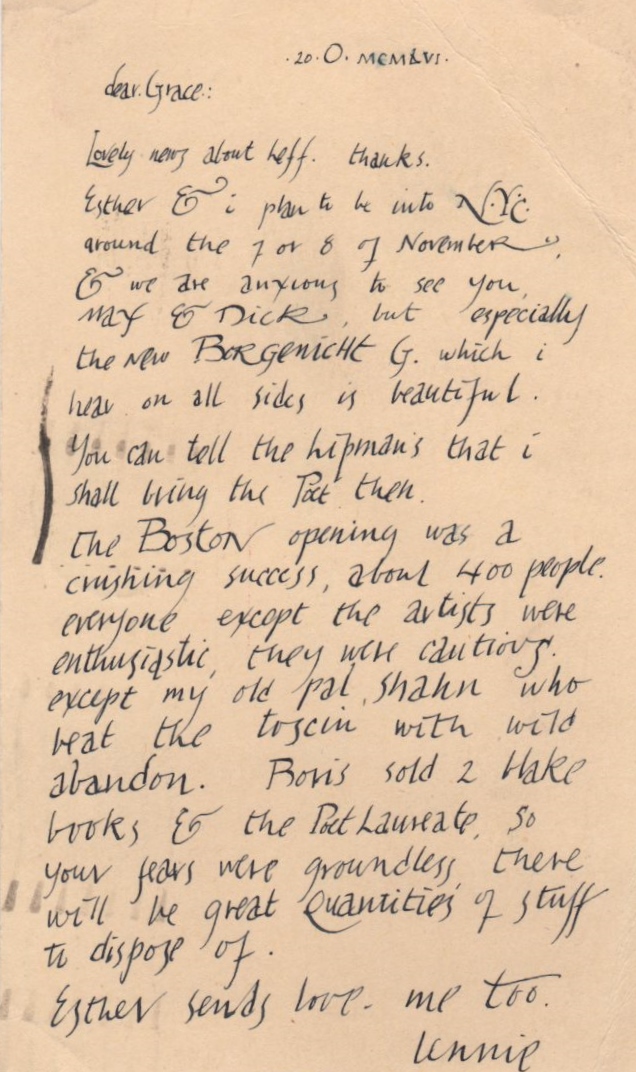 ·20·O·MCMLVI·
dear Grace:
Lovely news about Leff. thanks.
Esther & i plan to be into N.Y.C.
around the 7 or 8 of November,
& we are anxious to see you,
Max & Dick, but especially
the new Borgenicht G. which i
hear on all sides is beautiful.
You can tell the Lipman's that i
shall bring the Poet then.
The Boston opening was a
crushing success, about 400 people.
everyone except the artists were
enthusiastic, they were cautious.
except my old pal, Shahn who
beat the toscin with wild
abandon. Boris sold 2 blake
books & the Poet Laureate, so
your fears were groundless, there
will be great Quantities of stuff
to dispose of.
Esther sends love. me too.
Lennie